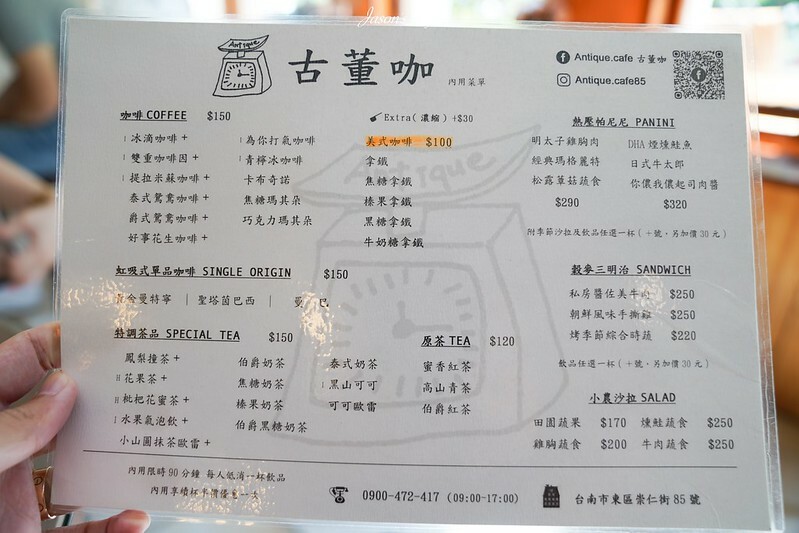 Jason
Antique
古董咖 內用菜單
Antique.cafe 古董咖
Antique.cafe85
咖啡 COFFEE $150
I 冰滴咖啡+
I 雙重咖啡因+
I 提拉米蘇咖啡+
泰式鴛鴦咖啡+
爵式鴛鴦咖啡+
好事花生咖啡+
I 為你打氣咖啡
I 青檸冰咖啡
卡布奇諾
焦糖瑪其朵
巧克力瑪其朵
Extra(濃縮) +$30
美式咖啡 $100
拿鐵
焦糖拿鐵
榛果拿鐵
黑糖拿鐵
牛奶糖拿鐵
熱壓帕尼尼 PANINI
明太子雞胸肉
經典瑪格麗特
松露蕈菇蔬食
$290
DHA 煙燻鮭魚
日式牛太郎
你儂我儂起司肉醬
$320
附季節沙拉及飲品任選一杯(+號、另加價30元)
虹吸式單品咖啡 SINGLE ORIGIN $150
黃金曼特寧 | 聖塔茵巴西 | 曼 巴
穀麥三明治 SANDWICH
私房醬佐美牛肉 $250
朝鮮風味手撕雞 $250
烤季節綜合時蔬 $220
飲品任選一杯(+號、另加價30元)
特調茶品 SPECIAL TEA $150
鳳梨撞茶+
H 花果茶+
H 枇杷花蜜茶+
I 水果氣泡飲+
小山圓抹茶歐雷+
伯爵奶茶
焦糖奶茶
榛果奶茶
伯爵黑糖奶茶
泰式奶茶
I 黑山可可
可可歐雷
原茶 TEA $120
蜜香紅茶
高山青茶
伯爵紅茶
小農沙拉 SALAD
田園蔬果 $170 燻鮭蔬食 $250
雞胸蔬食 $200 牛肉蔬食 $250
內用限時90分鐘 每人低消一杯飲品
內用享續杯半價優惠一次
0900-472-417 (09:00-17:00)
台南市東區崇仁街85號